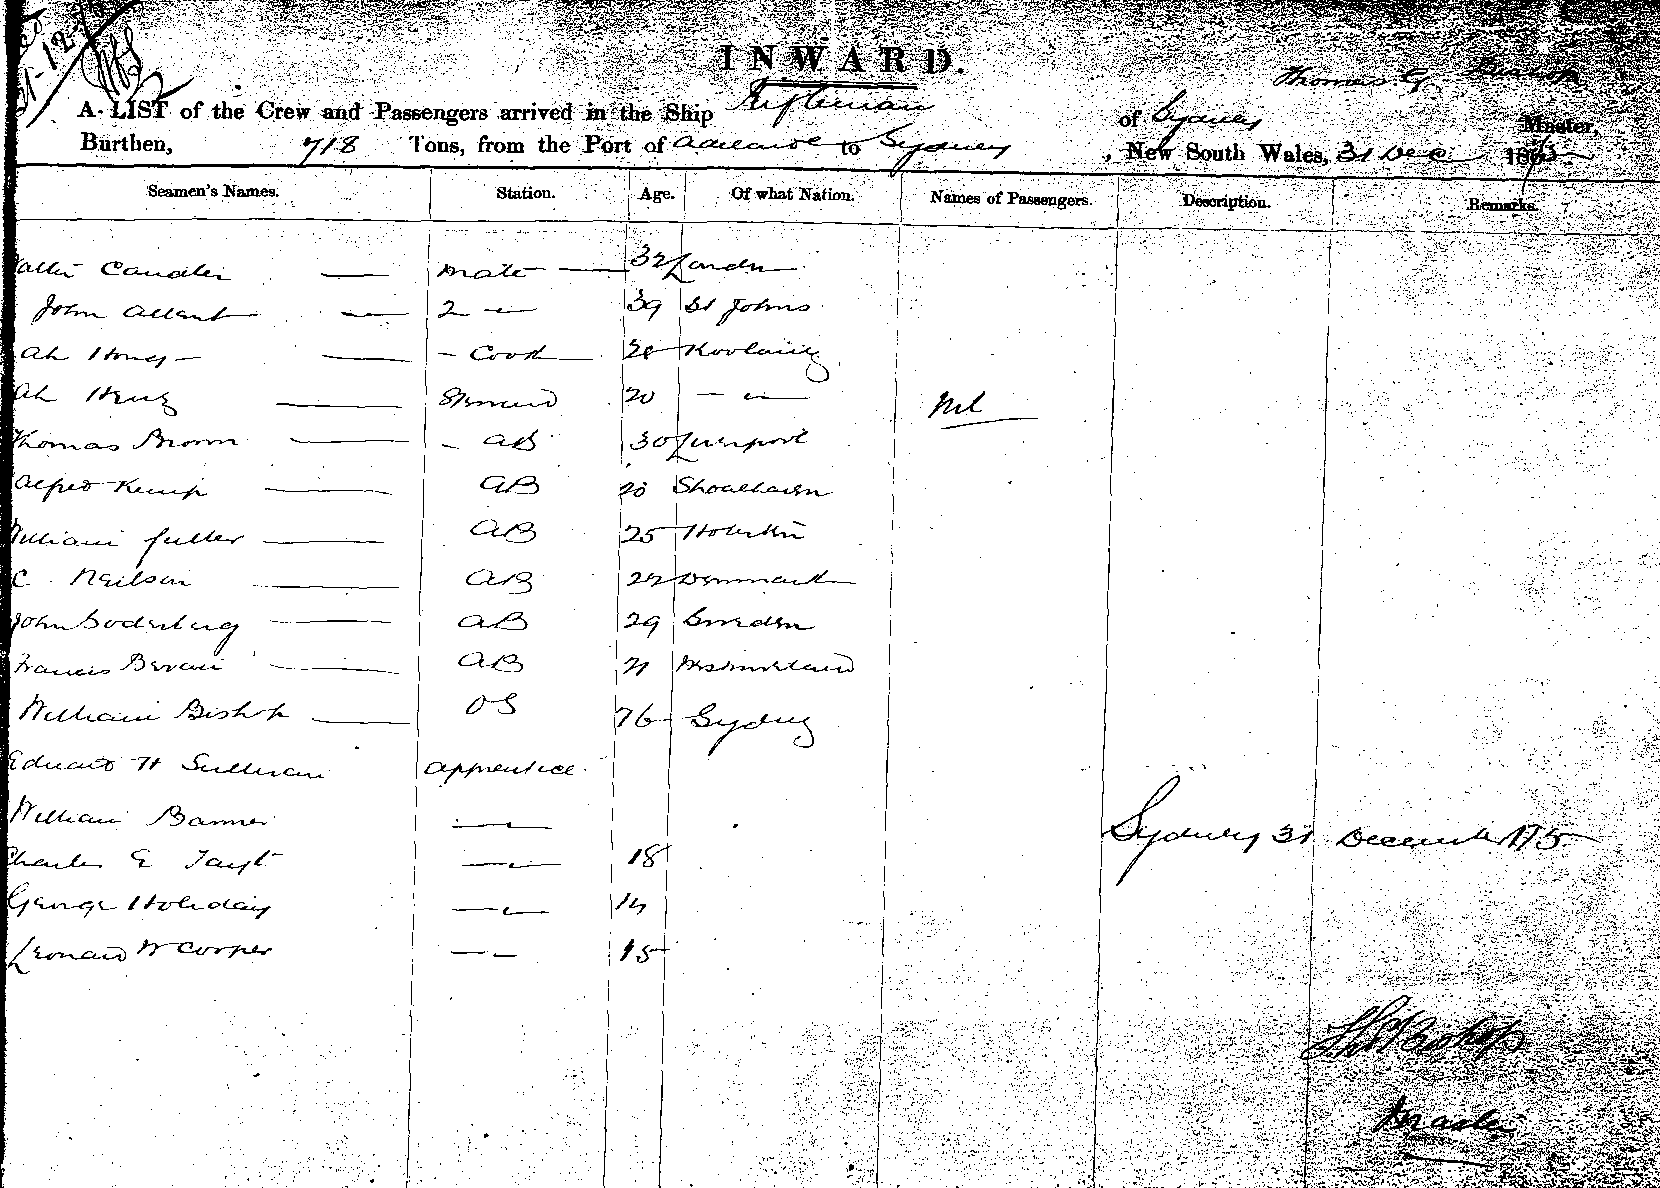 INWARD.
Thomas G
A LIST of the Crew and Passengers arrived in the Ship Rifleman of Sydney Master,
Burthen, 718 Tons, from the Port of Adelaide to Sydney, New South Wales, 31 Dec 187
Seamen's Names. Station. Age. Of what Nation. Names of Passengers. Description. Remarks.
Candler mate 32 London
John Allant 2 — 39 St Johns
Ah Hong Cook
Ah Steward 20 —"—
Nil
Thomas Brown AB 30 Liverpool
Alfred Kemp AB 20 Shoalhaven
William fuller AB 25
C Neilson AB 22 Denmark
John Soderberg AB 29 Sweden
Francis AB 21
William Bishop OS Sydney
Edward H Sullivan apprentice
William Banner —"—
Sydney 31 December 175
Charles E —"— 18
George Holiday —"—
Leonard W Cooper —"— 15
Master